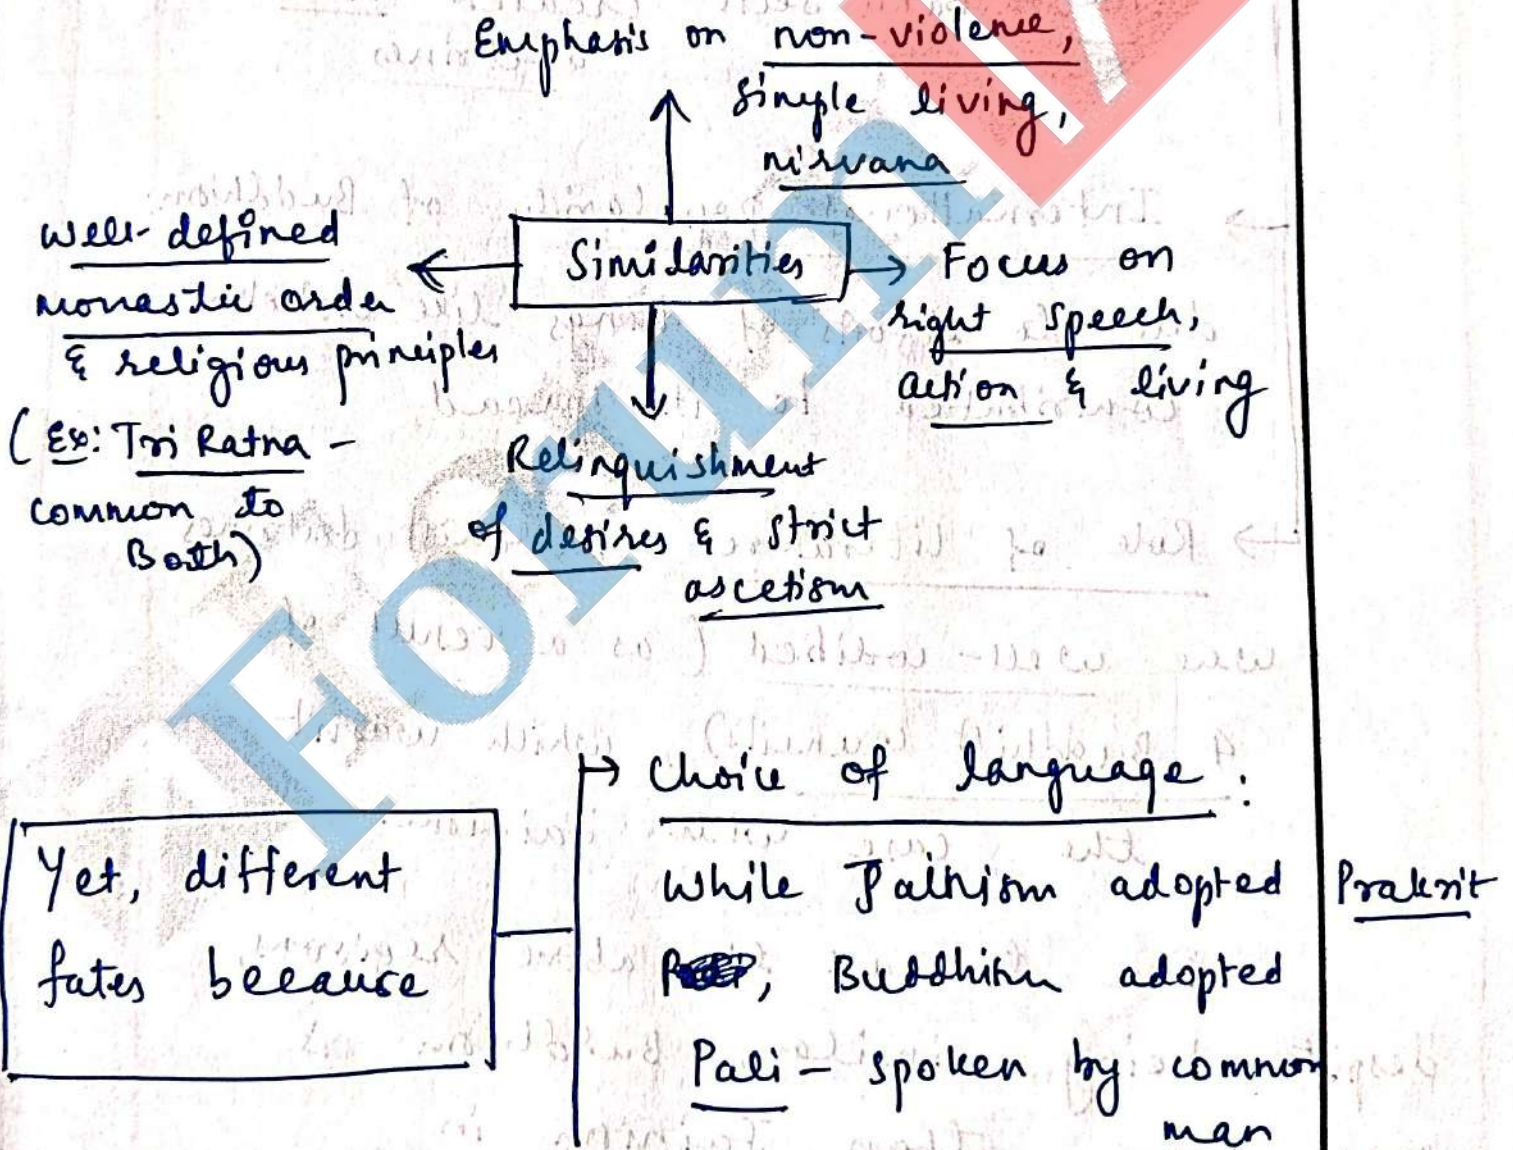 Emphasis on non-violence,
simple living,
nirvana
Well-defined
monastic order
& religious principles
(Ex: Tri Ratna -
common to
Both)
Similarities
Focus on
right speech,
action & living
Relinquishment
of desires & strict
ascetism
Yet, different
fates because
→ Choice of language :
While Jainism adopted Prakrit
, Buddhism adopted
Pali - spoken by common
man
Forum